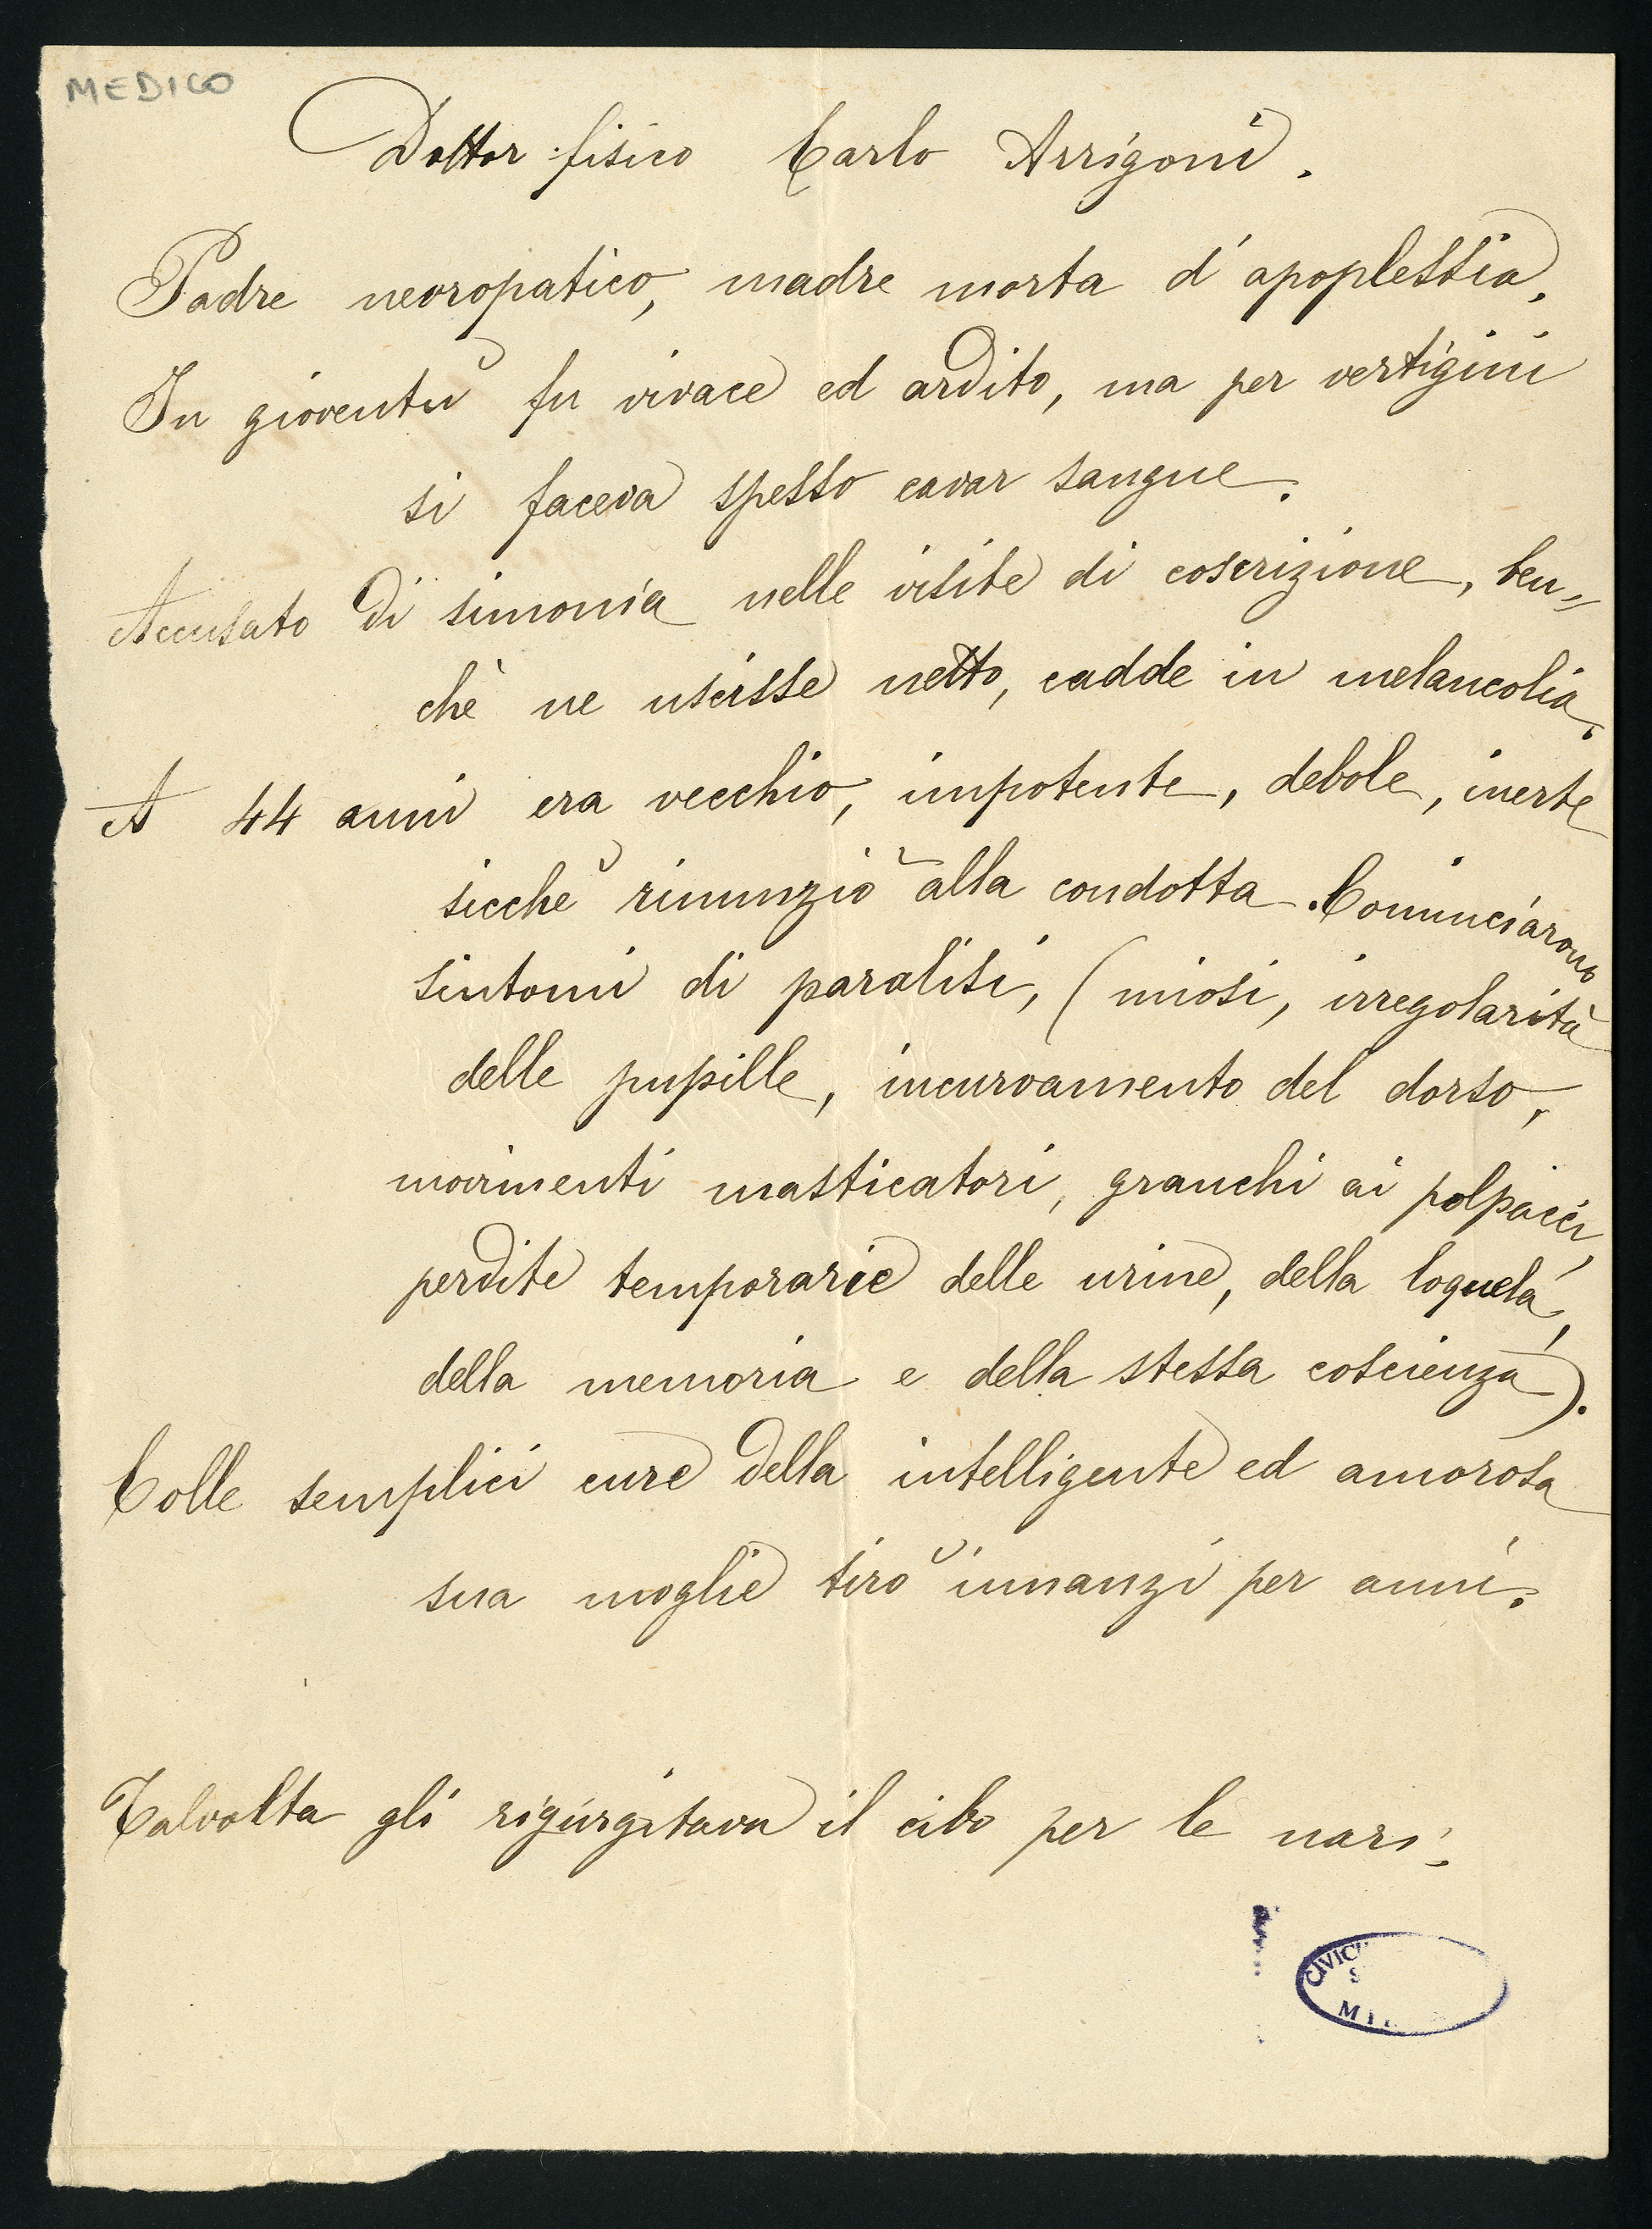 MEDICO
Dottor fisico Carlo Arrigoni.
Padre nevropatico, madre morta d'apoplessia.
In gioventù fu vivace ed ardito, ma per vertigini
si faceva spesso cavar sangue.
Accusato di simonia nelle visite di coscrizione, ben=
chè ne uscisse netto, cadde in melancolia.
A 44 anni era vecchio, impotente, debole, inerte
sicchè rinunziò alla condotta. Cominciarono
sintomi di paralisi, (miosi, irregolarità
delle pupille, incurvamento del dorso,
movimenti masticatori, granchi ai polpacci,
perdite temporarie delle urine, della loquela,
della memoria e della stessa coscienza).
Colle semplici cure della intelligente ed amorosa
sua moglie tirò innanzi per anni.
Talvolta gli rigurgitava il cibo per le nari.
CIVIC
S
MI